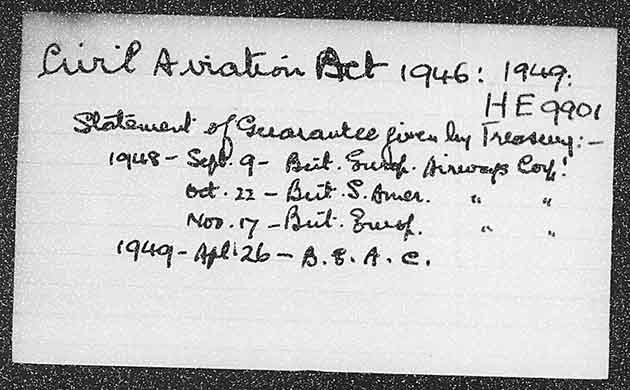 Civil Aviation Act 1946: 1949:
HE 9901
Statement of Guarantee given by Treasury:-
1948 - Sept. 9 - Brit. Europ. Airways Corp:
Oct. 22 - Brit. S. Amer. " "
Nov. 17 - Brit. Europ. " "
1949 - Apl: 26 - B. E. A. C.